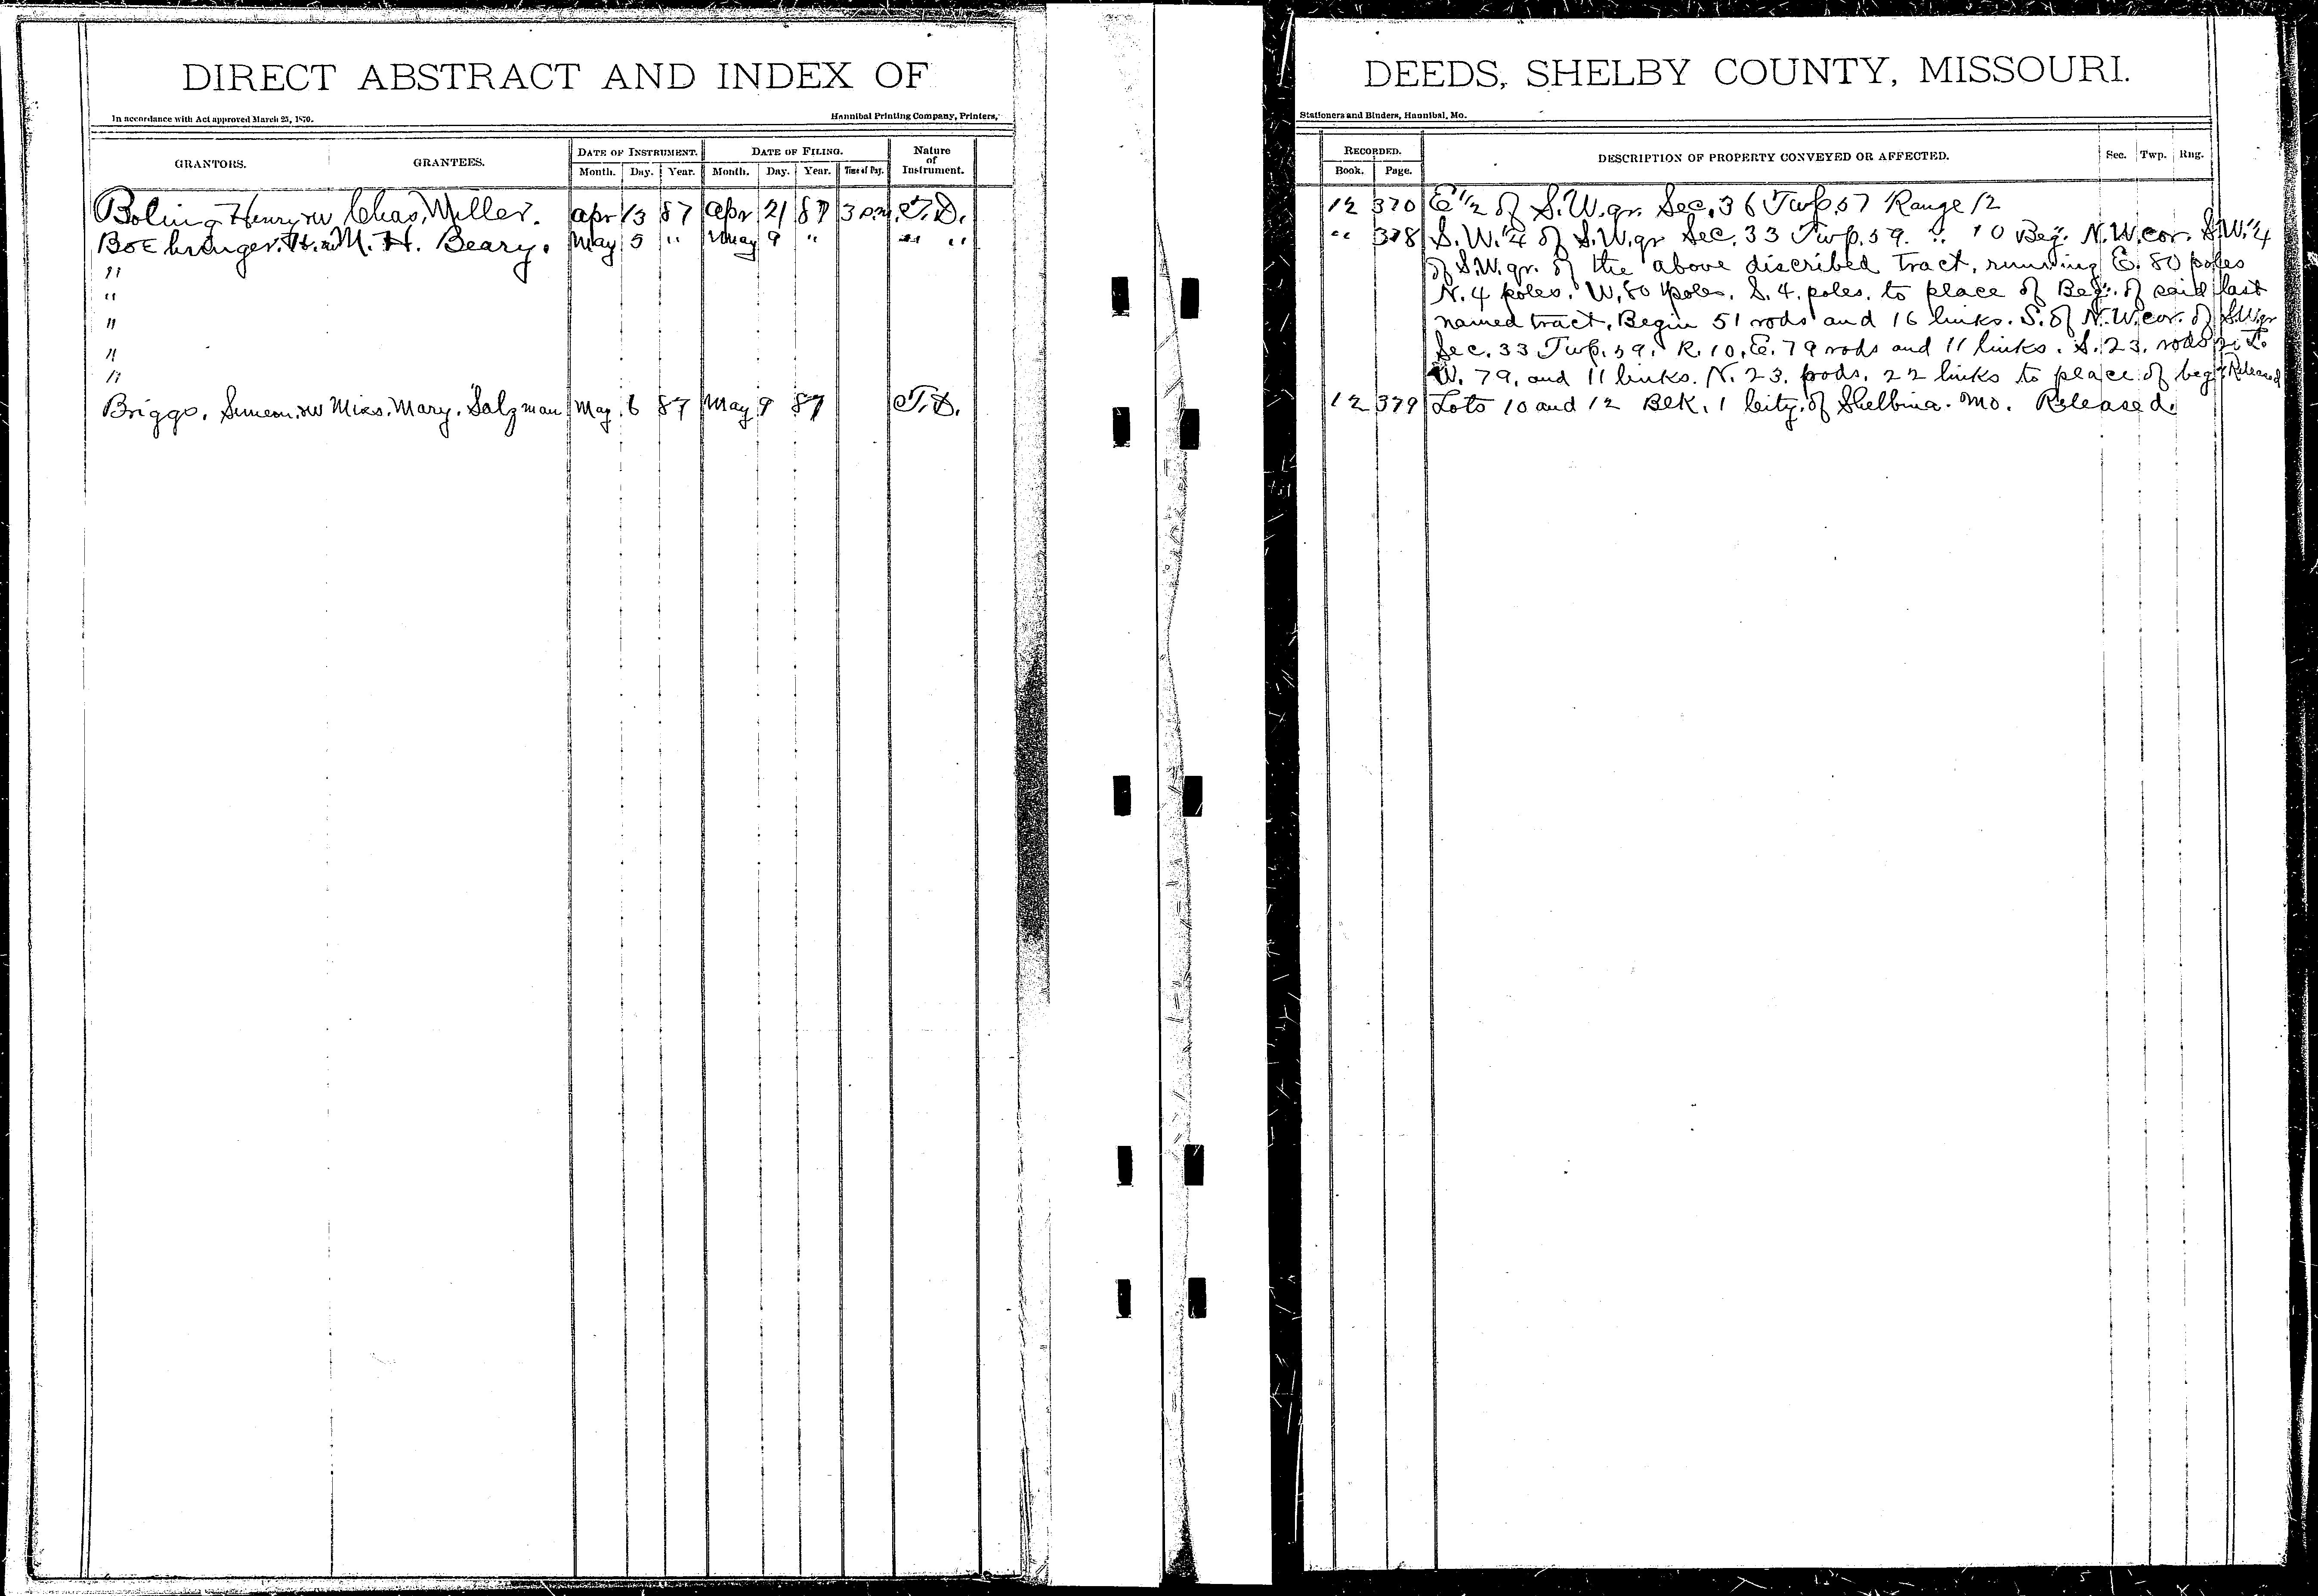 DIRECT ABSTRACT AND INDEX OF
In accordance with Act approved March 25, 1870.
Hannibal Printing Company, Printers,
GRANTORS. GRANTEES. DATE OF INSTRUMENT. DATE OF FILING. Nature of Instrument.
Month. Day. Year. Month. Day. Year. Time of Day.
Boling Henry Chas. Miller. Apr 13 87 Apr 21 87 3 P.M. T.D.
M. H. Beary. May 5 " May 9 " " "
"
"
"
"
"
Briggs, Simeon Miss. Mary. Salzman May 6 87 May 9 87 T.D.
DEEDS, SHELBY COUNTY, MISSOURI.
Stationers and Binders, Hannibal, Mo.
RECORDED. DESCRIPTION OF PROPERTY CONVEYED OR AFFECTED. Sec. Twp. Rng.
Book. Page.
12 370 E 1/2 of S.W. qr. Sec. 36 Twp. 57 Range 12
" 378 S.W. 1/4 of S.W. qr Sec. 33 Twp. 59. " 10 Beg. N.W. cor. S.W. 1/4
of S.W. qr. of the above discribed tract, running E. 80 poles
N. 4 poles. W. 80 poles. S. 4. poles. to place of Beg. of said last
named tract, Begin 51 rods and 16 links. S. of N.W. cor. of S.W. qr
Sec. 33 Twp. 59. R. 10. E. 79 rods and 11 links. S. 23. rods
W. 79. and 11 links. N. 23. rods. 22 links to place of beg. Released
12 379 Lots 10 and 12 Blk. 1 City of Shelbina. Mo. Released.